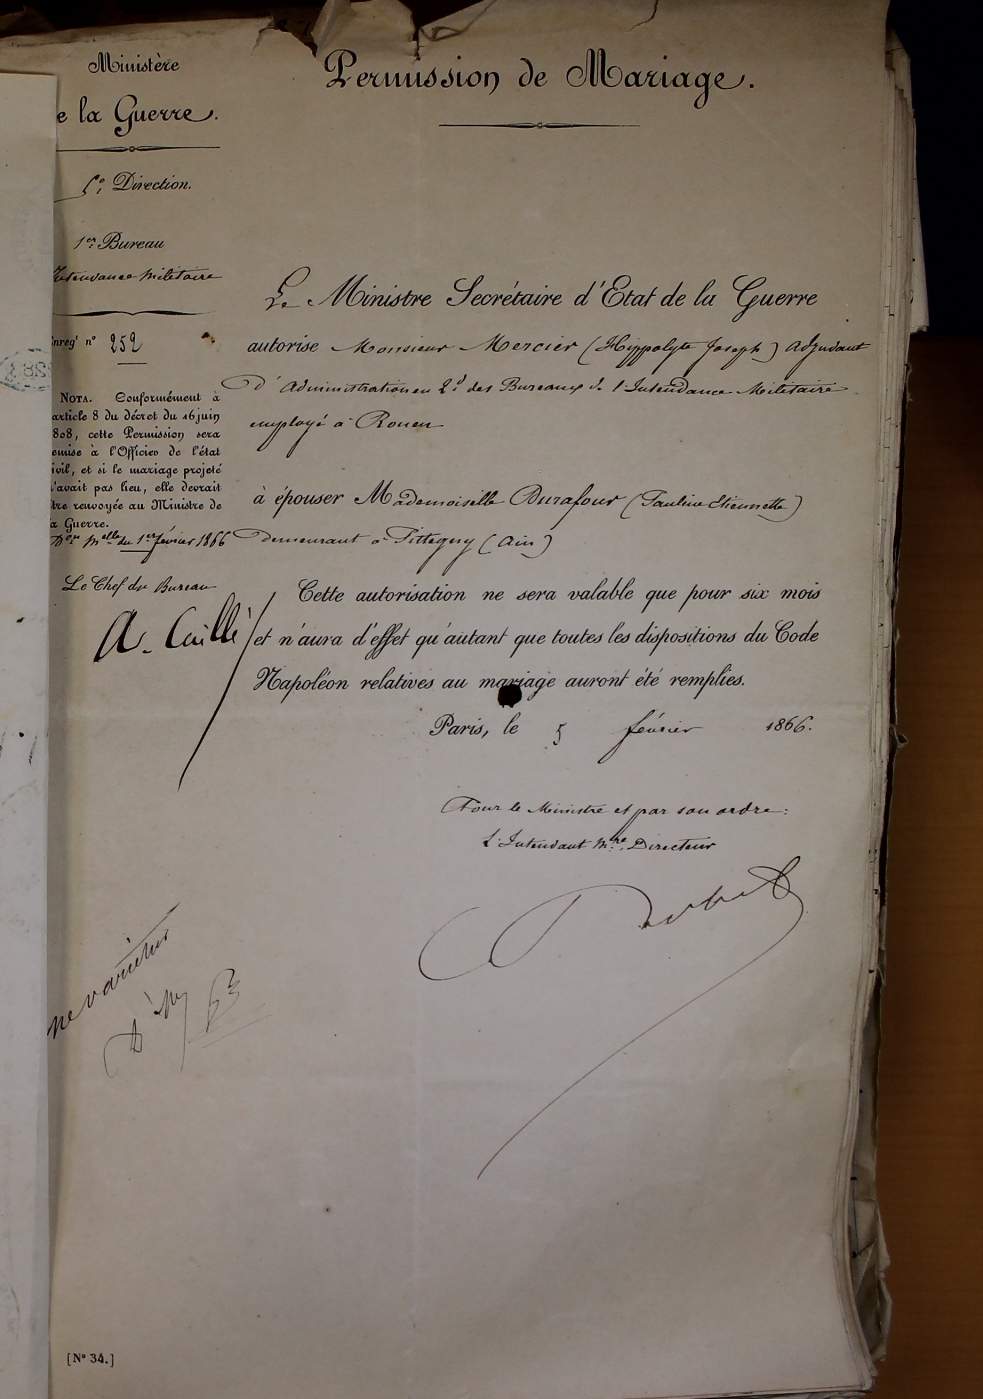 Ministère
e la Guerre.
5e Direction.
1er Bureau
Intendance Militaire
nregt n° 252
NOTA. Conformément à
article 8 du décret du 16 juin
808, cette Permission sera
emise à l'Officier de l'état
ivil, et si le mariage projeté
n'avait pas lieu, elle devrait
tre renvoyée au Ministre de
a Guerre.
Don Melle du 1er février 1866
Le Chef du Bureau
A. Caillé
Permission de Mariage.
Le Ministre Secrétaire d'Etat de la Guerre
autorise Monsieur Mercier (Hippolyte Joseph) Adjudant
d'Administration en 2d des Bureaux de l'Intendance Militaire
employé à Rouen
à épouser Mademoiselle Durafour (Pauline Etiennette)
Demeurant à (Ain)
Cette autorisation ne sera valable que pour six mois
et n'aura d'effet qu'autant que toutes les dispositions du Code
Napoléon relatives au mariage auront été remplies.
Paris, le 5 février 1866.
Pour le Ministre et par son ordre:
L'Intendant Mre, Directeur
ne varietur
[N° 34.]